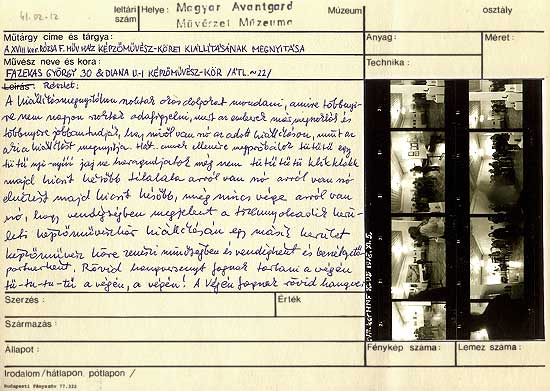 61.02.12
leltári szám
Helye: Magyar Avantgard Művészet Múzeuma Múzeum
osztály
Műtárgy címe és tárgya:
A XVIII. ker. RÓZSA F. MŰV. HÁZ KÉPZŐMŰVÉSZ-KÖREI KIÁLLÍTÁSÁNAK MEGNYITÁSA
Anyag:
Méret:
Művész neve és kora:
FAZEKAS GYÖRGY 30 & DIANA U-I KÉPZŐMŰVÉSZ-KÖR /ÁTL. ~22/
Technika:
Leírás: Részlet:
A kiállításmegnyitókon szoktak okos dolgokat mondani, amire többnyi-
re nem nagyon szoktak odafigyelni, mert az emberek más megnyitóról és
többnyire jobban tudják, hogy miről van szó az adott kiállításon, mint az
aki a kiállítást megnyitja. Hát ennek ellenére megpróbálok tü tü tü egy
tü tü nyi-nyőő jaj ne haragudjatok még nem tü tü tü tü
majd kicsit később tilalala arról van szó arról van szó
elnézést majd kicsit később, még nincs vége arról van
szó, hogy vendégségben megjelent a tizennyolcadik kerü-
leti képzőművészkör kiállításán egy másik kerület
képzőművész köre zenészi minőségben és vendégként és beszélgető-
partnerként. Rövid hangversenyt fognak tartani a végén
tü-tu-tu-tú a végén, a végén! A végén fognak rövid hangver-
Szerzés:
Érték
Származás:
Állapot:
Fénykép száma:
Lemez száma:
Irodalom /hátlapon, pótlapon/
Budapesti Fényszöv 77.322